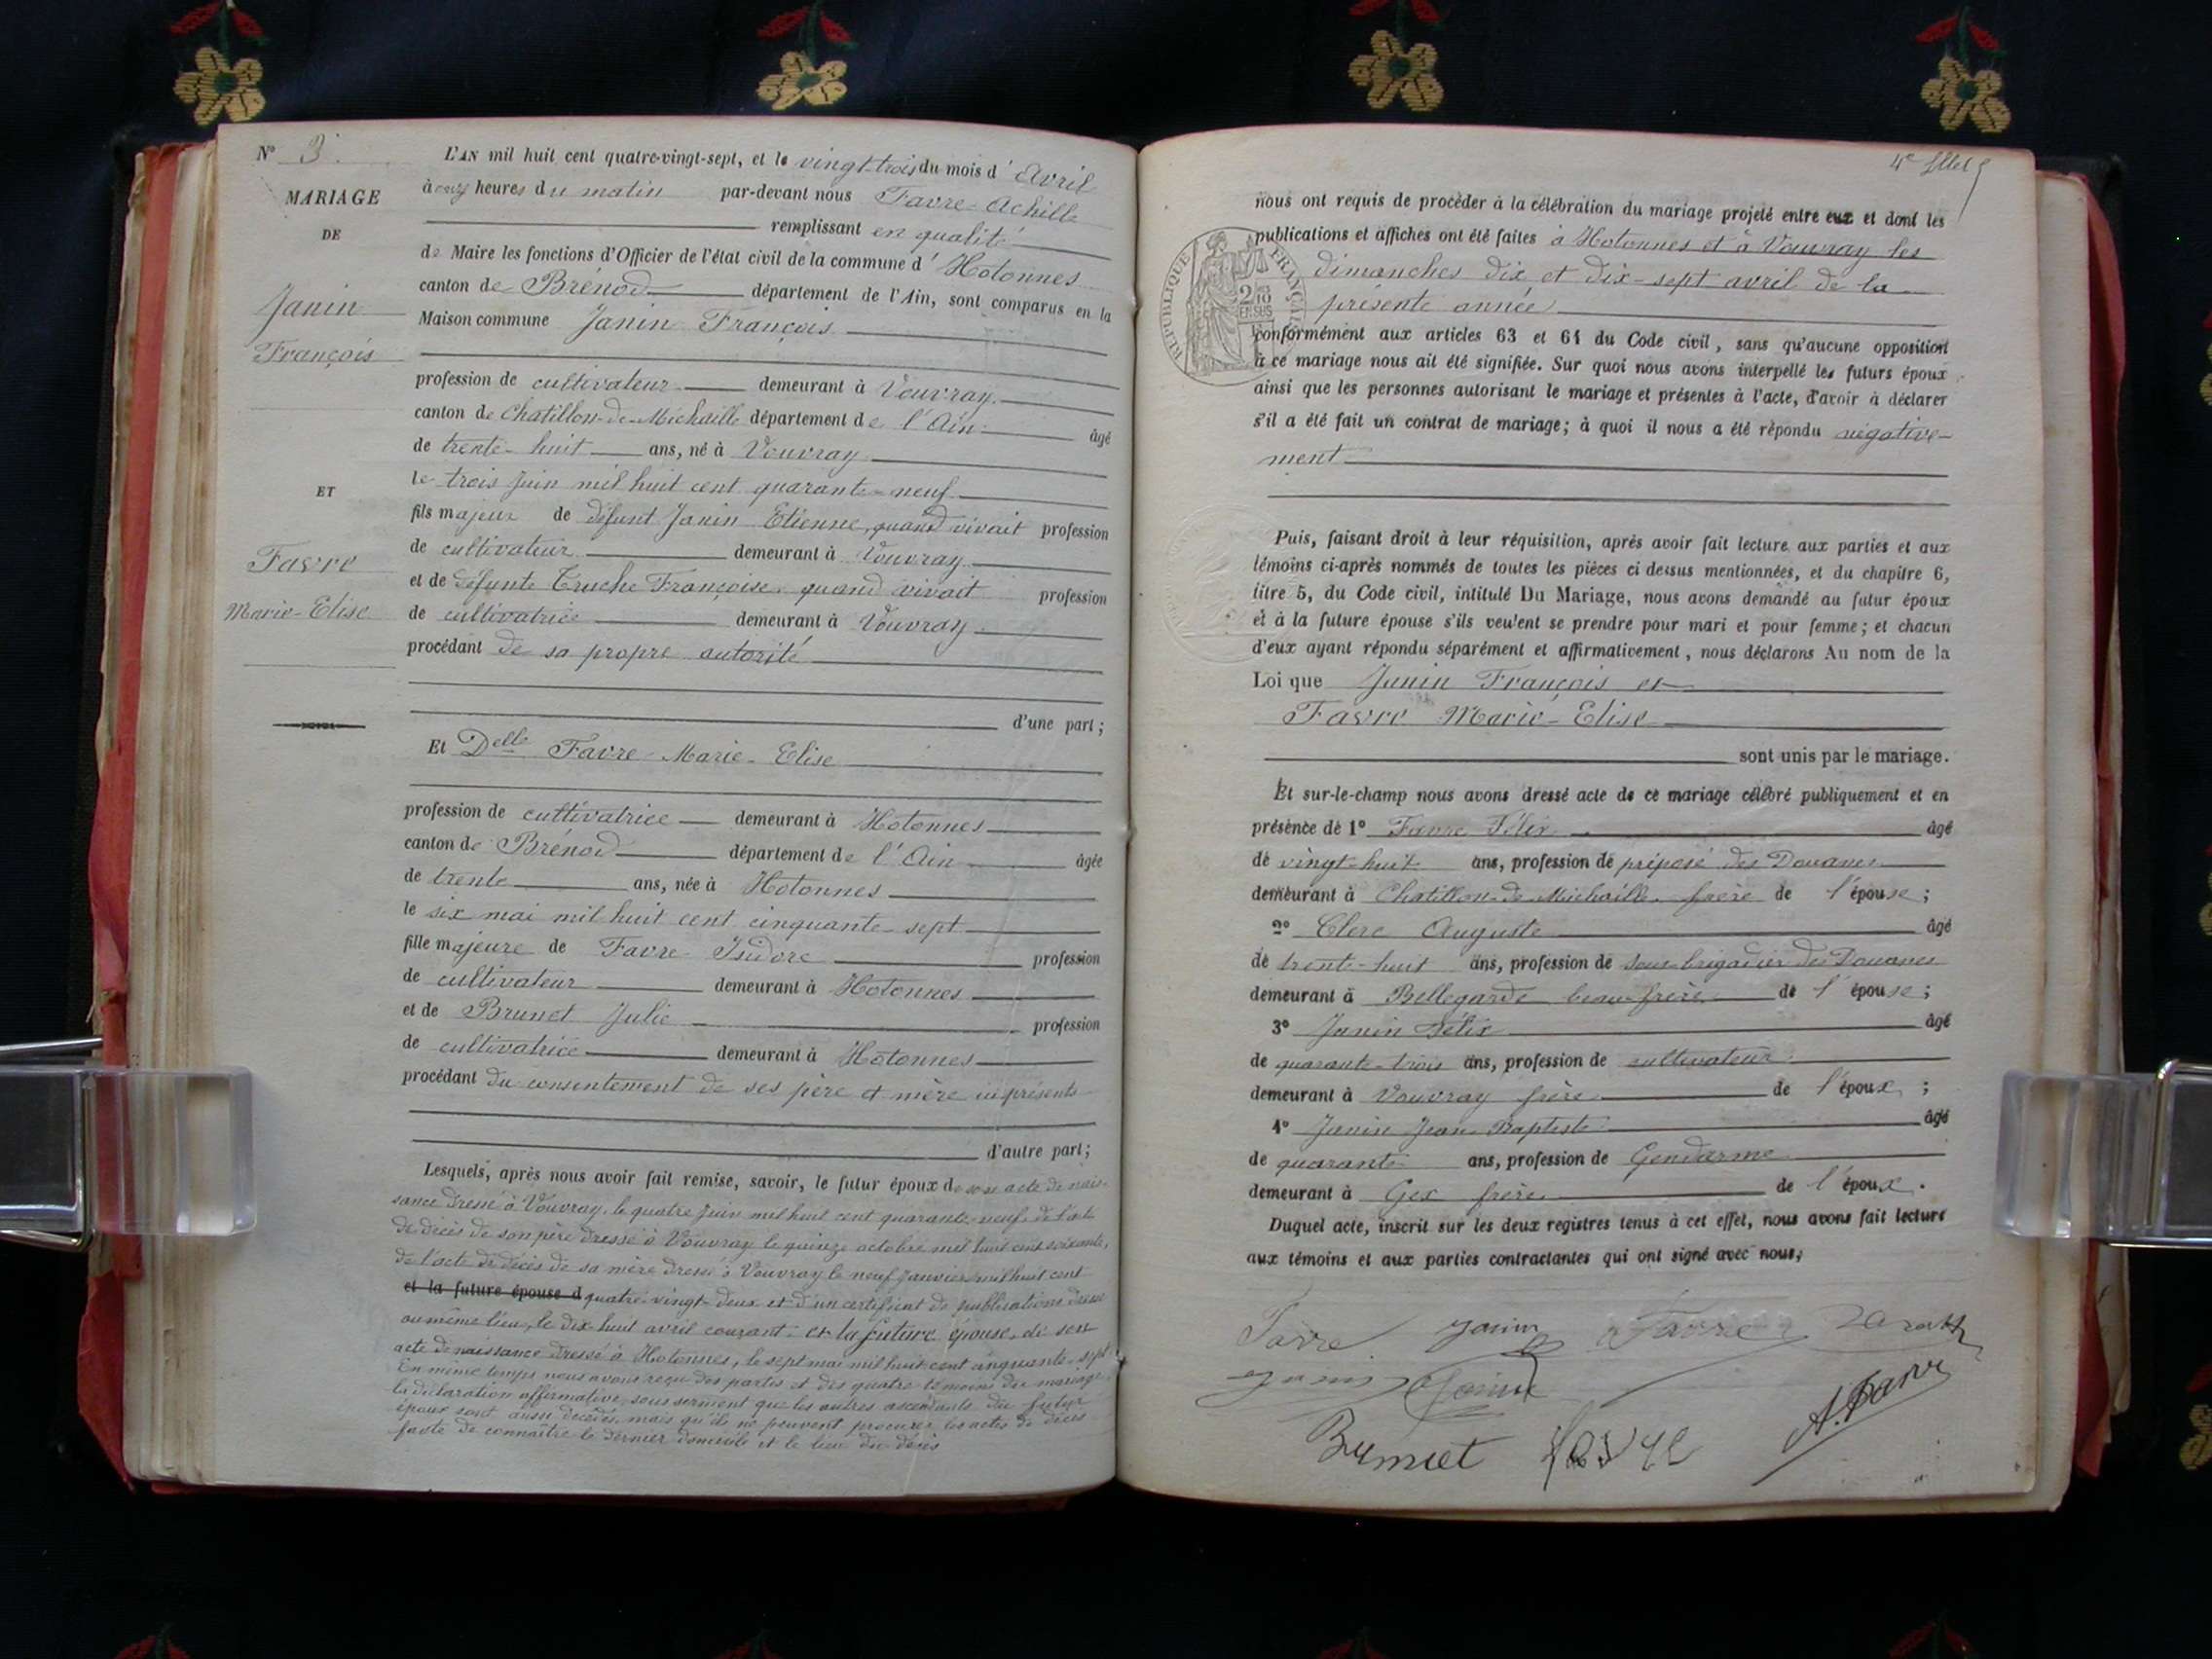 N° 3.
MARIAGE
DE
Janin
François
ET
Favre
Marie-Elise
L'AN mil huit cent quatre-vingt-sept, et le vingt-trois du mois d'Avril
à onze heures du matin par-devant nous Favre Achille
remplissant en qualité
de Maire les fonctions d'Officier de l'état civil de la commune d'Hotonnes
canton de Brénod département de l'Ain, sont comparus en la
Maison commune Janin François
profession de cultivateur demeurant à Vouvray
canton de Chatillon-de-Michaille département de l'Ain âgé
de trente-huit ans, né à Vouvray
le trois Juin mil huit cent quarante-neuf
fils majeur de défunt Janin Etienne, quand vivait profession
de cultivateur demeurant à Vouvray
et de défunte Truche Françoise, quand vivait profession
de cultivatrice demeurant à Vouvray
procédant de sa propre autorité
d'une part;
Et Delle Favre Marie-Elise
profession de cultivatrice demeurant à Hotonnes
canton de Brénod département de l'Ain âgée
de trente ans, née à Hotonnes
le six mai mil huit cent cinquante-sept
fille majeure de Favre Isidore profession
de cultivateur demeurant à Hotonnes
et de Brunet Julie profession
de cultivatrice demeurant à Hotonnes
procédant du consentement de ses père et mère ici présents
d'autre part;
Lesquels, après nous avoir fait remise, savoir, le futur époux de son acte de nais-
sance dressé à Vouvray, le quatre Juin mil huit cent quarante-neuf, de l'acte
de décès de son père dressé à Vouvray le quinze octobre mil huit cent soixante,
de l'acte de décès de sa mère dressé à Vouvray le neuf Janvier mil huit cent
et la future épouse d quatre-vingt-deux et d'un certificat de publications dressé
au même lieu, le dix-huit avril courant; et la future épouse, de son
acte de naissance dressé à Hotonnes, le sept mai mil huit cent cinquante-sept
En même temps nous avons reçu des parties et des quatre témoins du mariage,
la déclaration affirmative, sous serment que les autres ascendants du futur
époux sont aussi décédés, mais qu'ils ne peuvent procurer les actes de décès
faute de connaître le dernier domicile et le lieu du décès
nous ont requis de procéder à la célébration du mariage projeté entre eux et dont les
publications et affiches ont été faites à Hotonnes et à Vouvray les
dimanches dix et dix-sept avril de la
présente année
RÉPUBLIQUE FRANÇAISE
2/10 EN SUS
conformément aux articles 63 et 64 du Code civil, sans qu'aucune opposition
à ce mariage nous ait été signifiée. Sur quoi nous avons interpellé les futurs époux
ainsi que les personnes autorisant le mariage et présentes à l'acte, d'avoir à déclarer
s'il a été fait un contrat de mariage; à quoi il nous a été répondu négative-
ment
Puis, faisant droit à leur réquisition, après avoir fait lecture aux parties et aux
témoins ci-après nommés de toutes les pièces ci dessus mentionnées, et du chapitre 6,
titre 5, du Code civil, intitulé Du Mariage, nous avons demandé au futur époux
et à la future épouse s'ils veulent se prendre pour mari et pour femme; et chacun
d'eux ayant répondu séparément et affirmativement, nous déclarons Au nom de la
Loi que Janin François et
Favre Marie-Elise
sont unis par le mariage.
Et sur-le-champ nous avons dressé acte de ce mariage célébré publiquement et en
présence de 1° Favre Félix âgé
de vingt-huit ans, profession de préposé des Douanes
demeurant à Chatillon-de-Michaille, frère de l'épouse;
2° Clerc Auguste âgé
de trente-huit ans, profession de sous-brigadier des Douanes
demeurant à Bellegarde beau-frère de l'épouse;
3° Janin Félix âgé
de quarante-trois ans, profession de cultivateur
demeurant à Vouvray frère de l'époux;
4° Janin Jean Baptiste âgé
de quarante ans, profession de Gendarme
demeurant à Gex frère de l'époux.
Duquel acte, inscrit sur les deux registres tenus à cet effet, nous avons fait lecture
aux témoins et aux parties contractantes qui ont signé avec nous;
Favre Janin Favre
Janin Janin
Brunet A. Favre